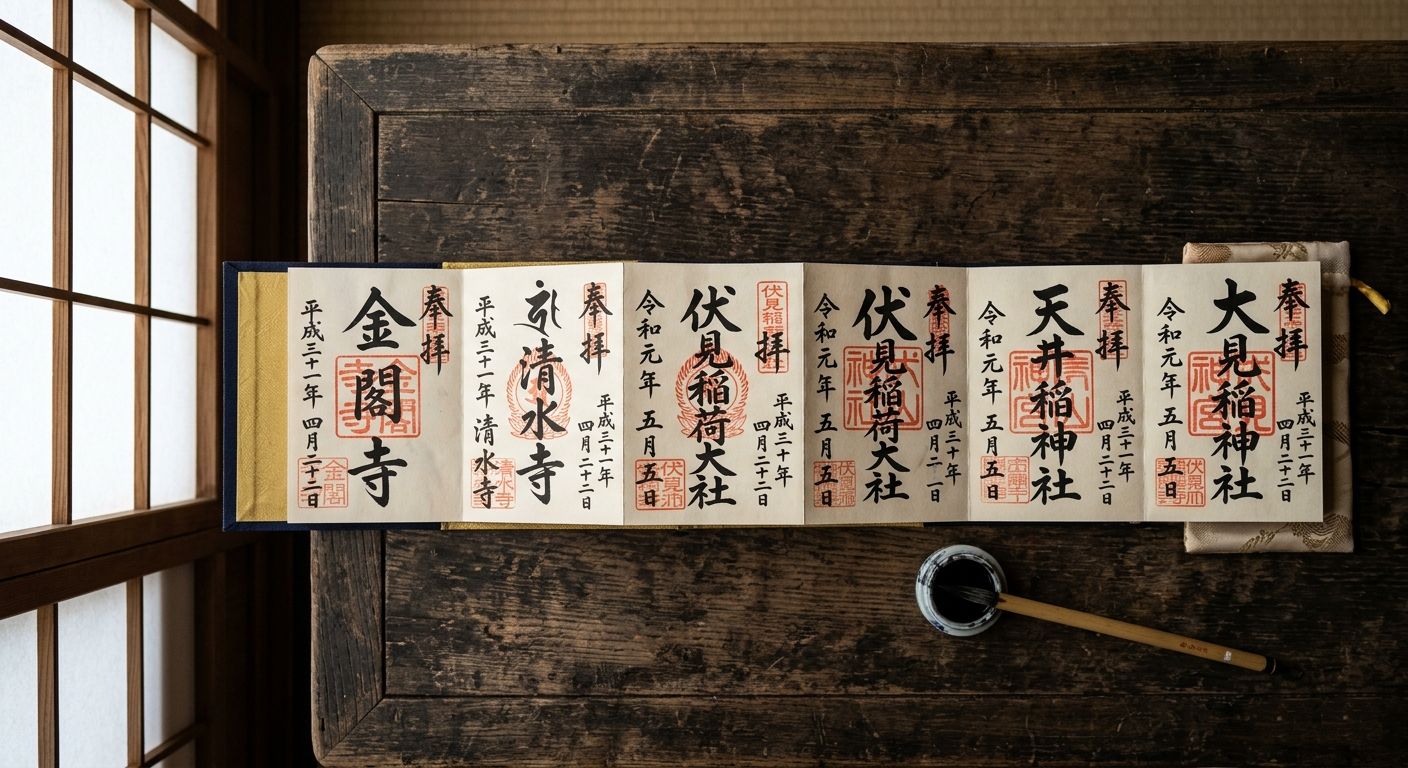 奉拝
平成三十一年
四月二十二日
大見稲神社
令和元年 五月五日
奉拝
平成三十一年
四月二十二日
天井稲神社
令和元年 五月五日
奉拝
平成三十一年
四月二一日
伏見稲荷大社
令和元年 五月五日
伏見稲
拝
平成三十年
四月二十二日
伏見稲荷大社
令和元年 五月五日
伏見
奉拝
平成三十一年
四月二十二日
清水寺
平成三十一年 清水寺
清水寺
奉拝
金閣寺
平成三十一年 四月二十二日
金閣